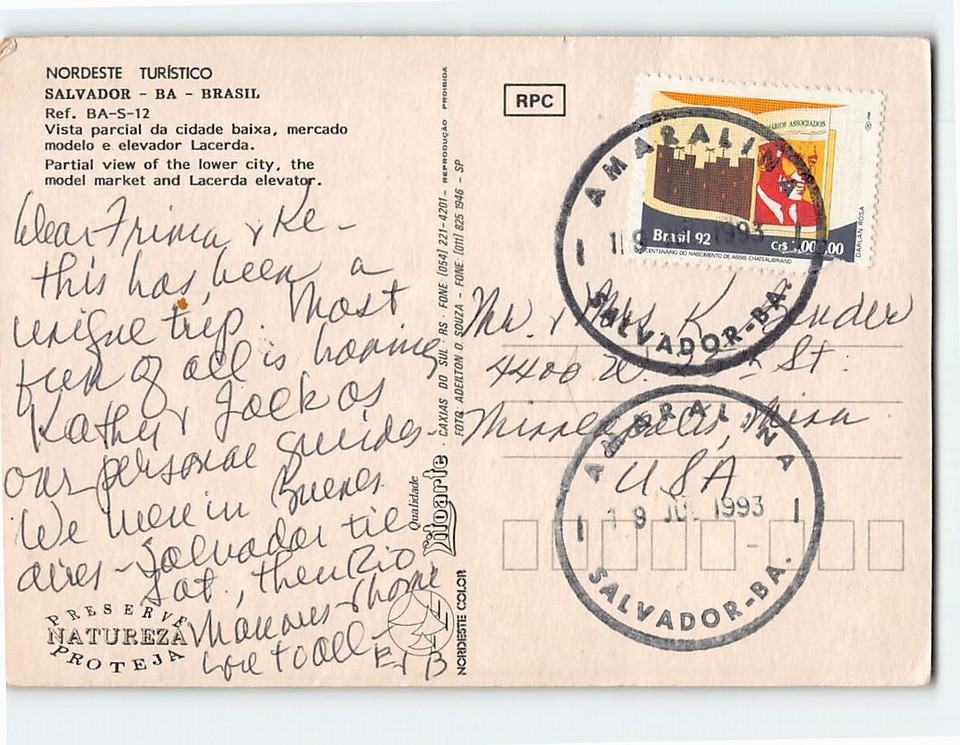 NORDESTE TURÍSTICO
SALVADOR - BA - BRASIL
Ref. BA-S-12
Vista parcial da cidade baixa, mercado
modelo e elevador Lacerda.
Partial view of the lower city, the
model market and Lacerda elevator.
Dear Frima & Ke -
this has been a
unique trip. Most
fun of all is having
Kathy & Jack as
our personal guides.
We were in Buenos
aires - Salvador til
Sat., then Rio
Manaus & home
Love to all
E & B
PRESERVE
NATUREZA
PROTEJA
CAXIAS DO SUL - RS - FONE (054) 221-4201 - REPRODUÇÃO PROIBIDA
FOTO: ADEILTON O. SOUZA - FONE: (011) 825 1946 - SP
Qualidade
Litoarte
NORDESTE COLOR
RPC
DIÁRIOS ASSOCIADOS
Brasil 92
Cr$
CENTENÁRIO DO NASCIMENTO DE ASSIS CHATEAUBRIAND
DARLAN ROSA
AMARALINA
19 1993
SALVADOR-BA.
Mr. & Mrs. K.
4400 W. St.
Minneapolis, Minn
USA
AMARALINA
19 JUL 1993
SALVADOR-BA.